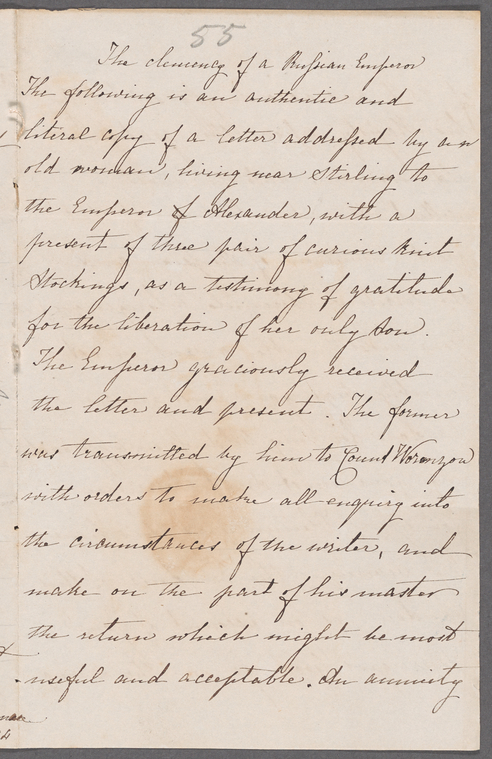 55
The clemency of a Russian Emperor
The following is an authentic and
literal copy of a letter addressed by an
old woman, living near Stirling to
the Emperor of Alexander, with a
present of three pair of curious knit
Stockings, as a testimony of gratitude
for the liberation of her only Son.
The Emperor graciously received
the letter and present. The former
was transmitted by him to Count Woronzow
with orders to make all enquiry into
the circumstances of the writer, and
make on the part of his master
the return which might be most
useful and acceptable. An annuity